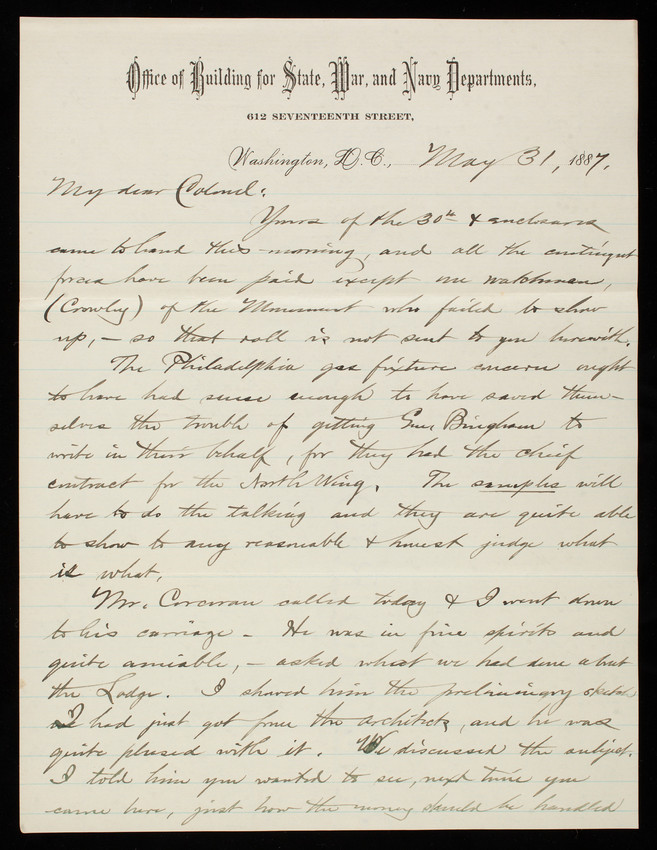 Office of Building for State, War, and Navy Departments,
612 SEVENTEENTH STREET,
Washington, D.C., May 31, 1887.
My dear Colonel:
Yours of the 30th & enclosures
came to hand this morning, and all the contingent
forces have been paid except one watchman,
(Crowley) of the Monument who failed to show
up, - so that roll is not sent to you herewith.
The Philadelphia gas fixture concern ought
to have had sense enough to have saved them-
selves the trouble of getting Genl Bingham to
write in their behalf, for they had the chief
contract for the North Wing. The samples will
have to do the talking and they are quite able
to show to any reasonable & honest judge what
is what.
Mr. Corcoran called today & I went down
to his carriage - He was in fine spirits and
quite amiable, - asked what we had done about
the Lodge. I showed him the preliminary sketch
I had just got from the architects, and he was
quite pleased with it. We discussed the subject.
I told him you wanted to see, next time you
came here, just how the money should be handled